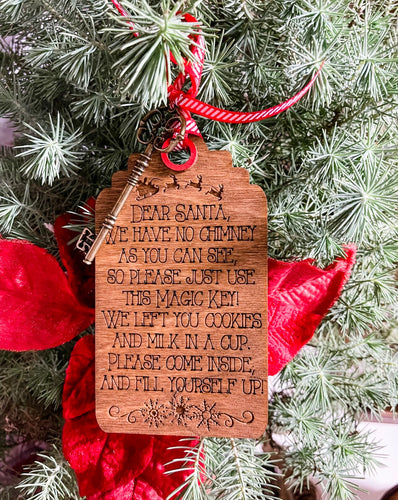 Dear Santa,
We have no chimney
as you can see,
so please just use
this Magic Key!
We left you cookies
and milk in a cup.
Please come inside,
and fill yourself up!